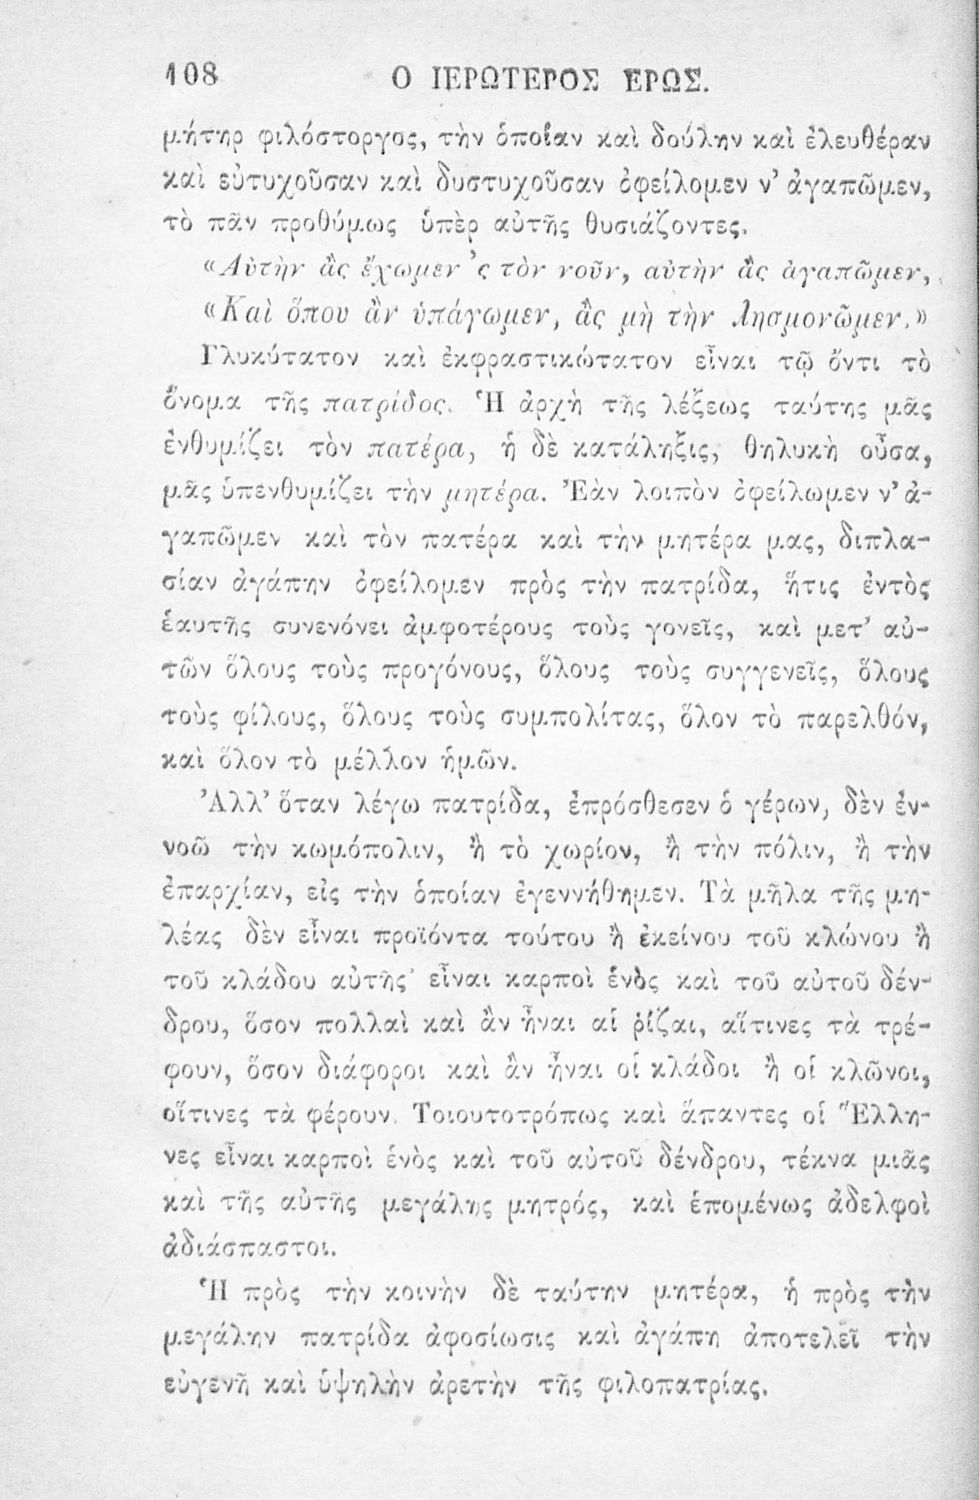 108 Ο ΙΕΡΩΤΕΡΟΣ ΕΡΩΣ.
μήτηρ φιλόστοργος, τὴν ὁποίαν καὶ δούλην καὶ ἐλευθέραν
καὶ εὐτυχοῦσαν καὶ δυστυχοῦσαν ὀφείλομεν ν’ ἀγαπῶμεν,
τὸ πᾶν προθύμως ὑπὲρ αὐτῆς θυσιάζοντες.
«Αὐτὴν ἂς ἔχωμεν ’ς τὸν νοῦν, αὐτὴν ἂς ἀγαπῶμεν,
«Καὶ ὅπου ἂν ὑπάγωμεν, ἂς μὴ τὴν λησμονῶμεν.»
Γλυκύτατον καὶ ἐκφραστικώτατον εἶναι τῷ ὄντι τὸ
ὄνομα τῆς πατρίδος. Ἡ ἀρχὴ τῆς λέξεως ταύτης μᾶς
ἐνθυμίζει τὸν πατέρα, ἡ δὲ κατάληξις, θηλυκὴ οὖσα,
μᾶς ὑπενθυμίζει τὴν μητέρα. Ἐὰν λοιπὸν ὀφείλωμεν ν’ ἀ-
γαπῶμεν καὶ τὸν πατέρα καὶ τὴν μητέρα μας, διπλα-
σίαν ἀγάπην ὀφείλομεν πρὸς τὴν πατρίδα, ἥτις ἐντὸς
ἑαυτῆς συνενόνει ἀμφοτέρους τοὺς γονεῖς, καὶ μετ’ αὐ-
τῶν ὅλους τοὺς προγόνους, ὅλους τοὺς συγγενεῖς, ὅλους
τοὺς φίλους, ὅλους τοὺς συμπολίτας, ὅλον τὸ παρελθόν,
καὶ ὅλον τὸ μέλλον ἡμῶν.
Ἀλλ’ ὅταν λέγω πατρίδα, ἐπρόσθεσεν ὁ γέρων, δὲν ἐν-
νοῶ τὴν κωμόπολιν, ἢ τὸ χωρίον, ἢ τὴν πόλιν, ἢ τὴν
ἐπαρχίαν, εἰς τὴν ὁποίαν ἐγεννήθημεν. Τὰ μῆλα τῆς μη-
λέας δὲν εἶναι προϊόντα τούτου ἢ ἐκείνου τοῦ κλώνου ἢ
τοῦ κλάδου αὐτῆς· εἶναι καρποὶ ἑνὸς καὶ τοῦ αὐτοῦ δέν-
δρου, ὅσον πολλαὶ καὶ ἂν ἦναι αἱ ῥίζαι, αἵτινες τὰ τρέ-
φουν, ὅσον διάφοροι καὶ ἂν ἦναι οἱ κλάδοι ἢ οἱ κλῶνοι,
οἵτινες τὰ φέρουν. Τοιουτοτρόπως καὶ ἅπαντες οἱ Ἕλλη-
νες εἶναι καρποὶ ἑνὸς καὶ τοῦ αὐτοῦ δένδρου, τέκνα μιᾶς
καὶ τῆς αὐτῆς μεγάλης μητρός, καὶ ἑπομένως ἀδελφοὶ
ἀδιάσπαστοι.
Ἡ πρὸς τὴν κοινὴν δὲ ταύτην μητέρα, ἡ πρὸς τὴν
μεγάλην πατρίδα ἀφοσίωσις καὶ ἀγάπη ἀποτελεῖ τὴν
εὐγενῆ καὶ ὑψηλὴν ἀρετὴν τῆς φιλοπατρίας.